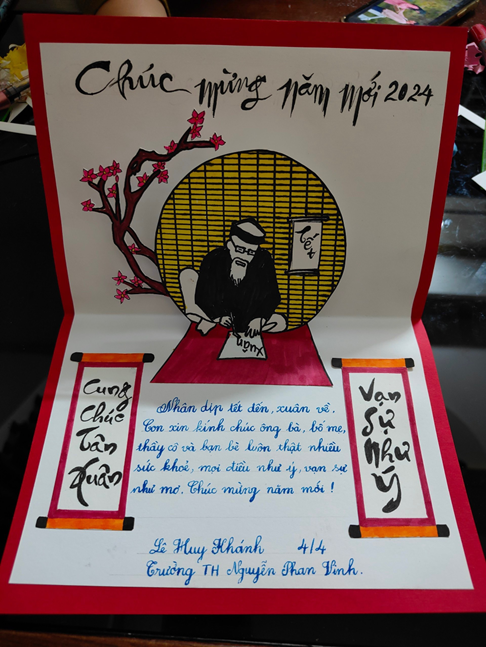 Chúc mừng năm mới 2024
Tết
Xuân
Cung
Chúc
Tân
Xuân
Nhân dịp tết đến, xuân về.
Con xin kính chúc ông bà, bố mẹ,
thầy cô và bạn bè luôn thật nhiều
sức khoẻ, mọi điều như ý, vạn sự
như mơ. Chúc mừng năm mới !
Vạn
Sự
Như
Ý
Lê Huy Khánh 4/4
Trường TH Nguyễn Phan Vinh.